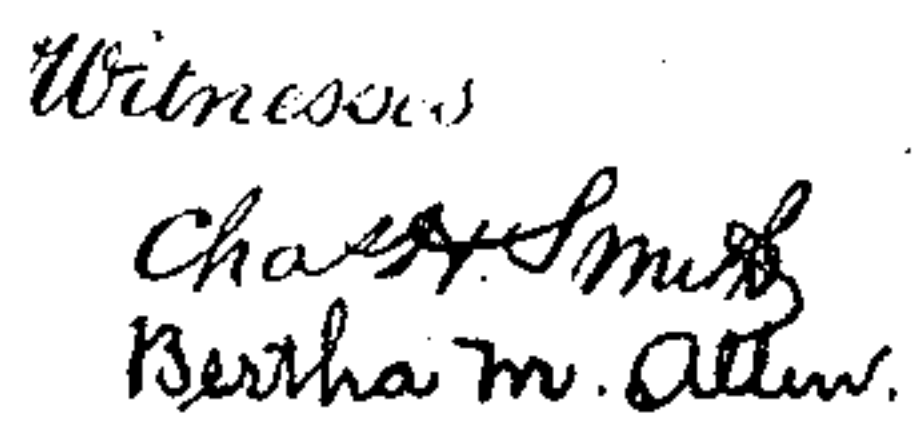 Witnesses
Chas H. Smith
Bertha M. Allen.